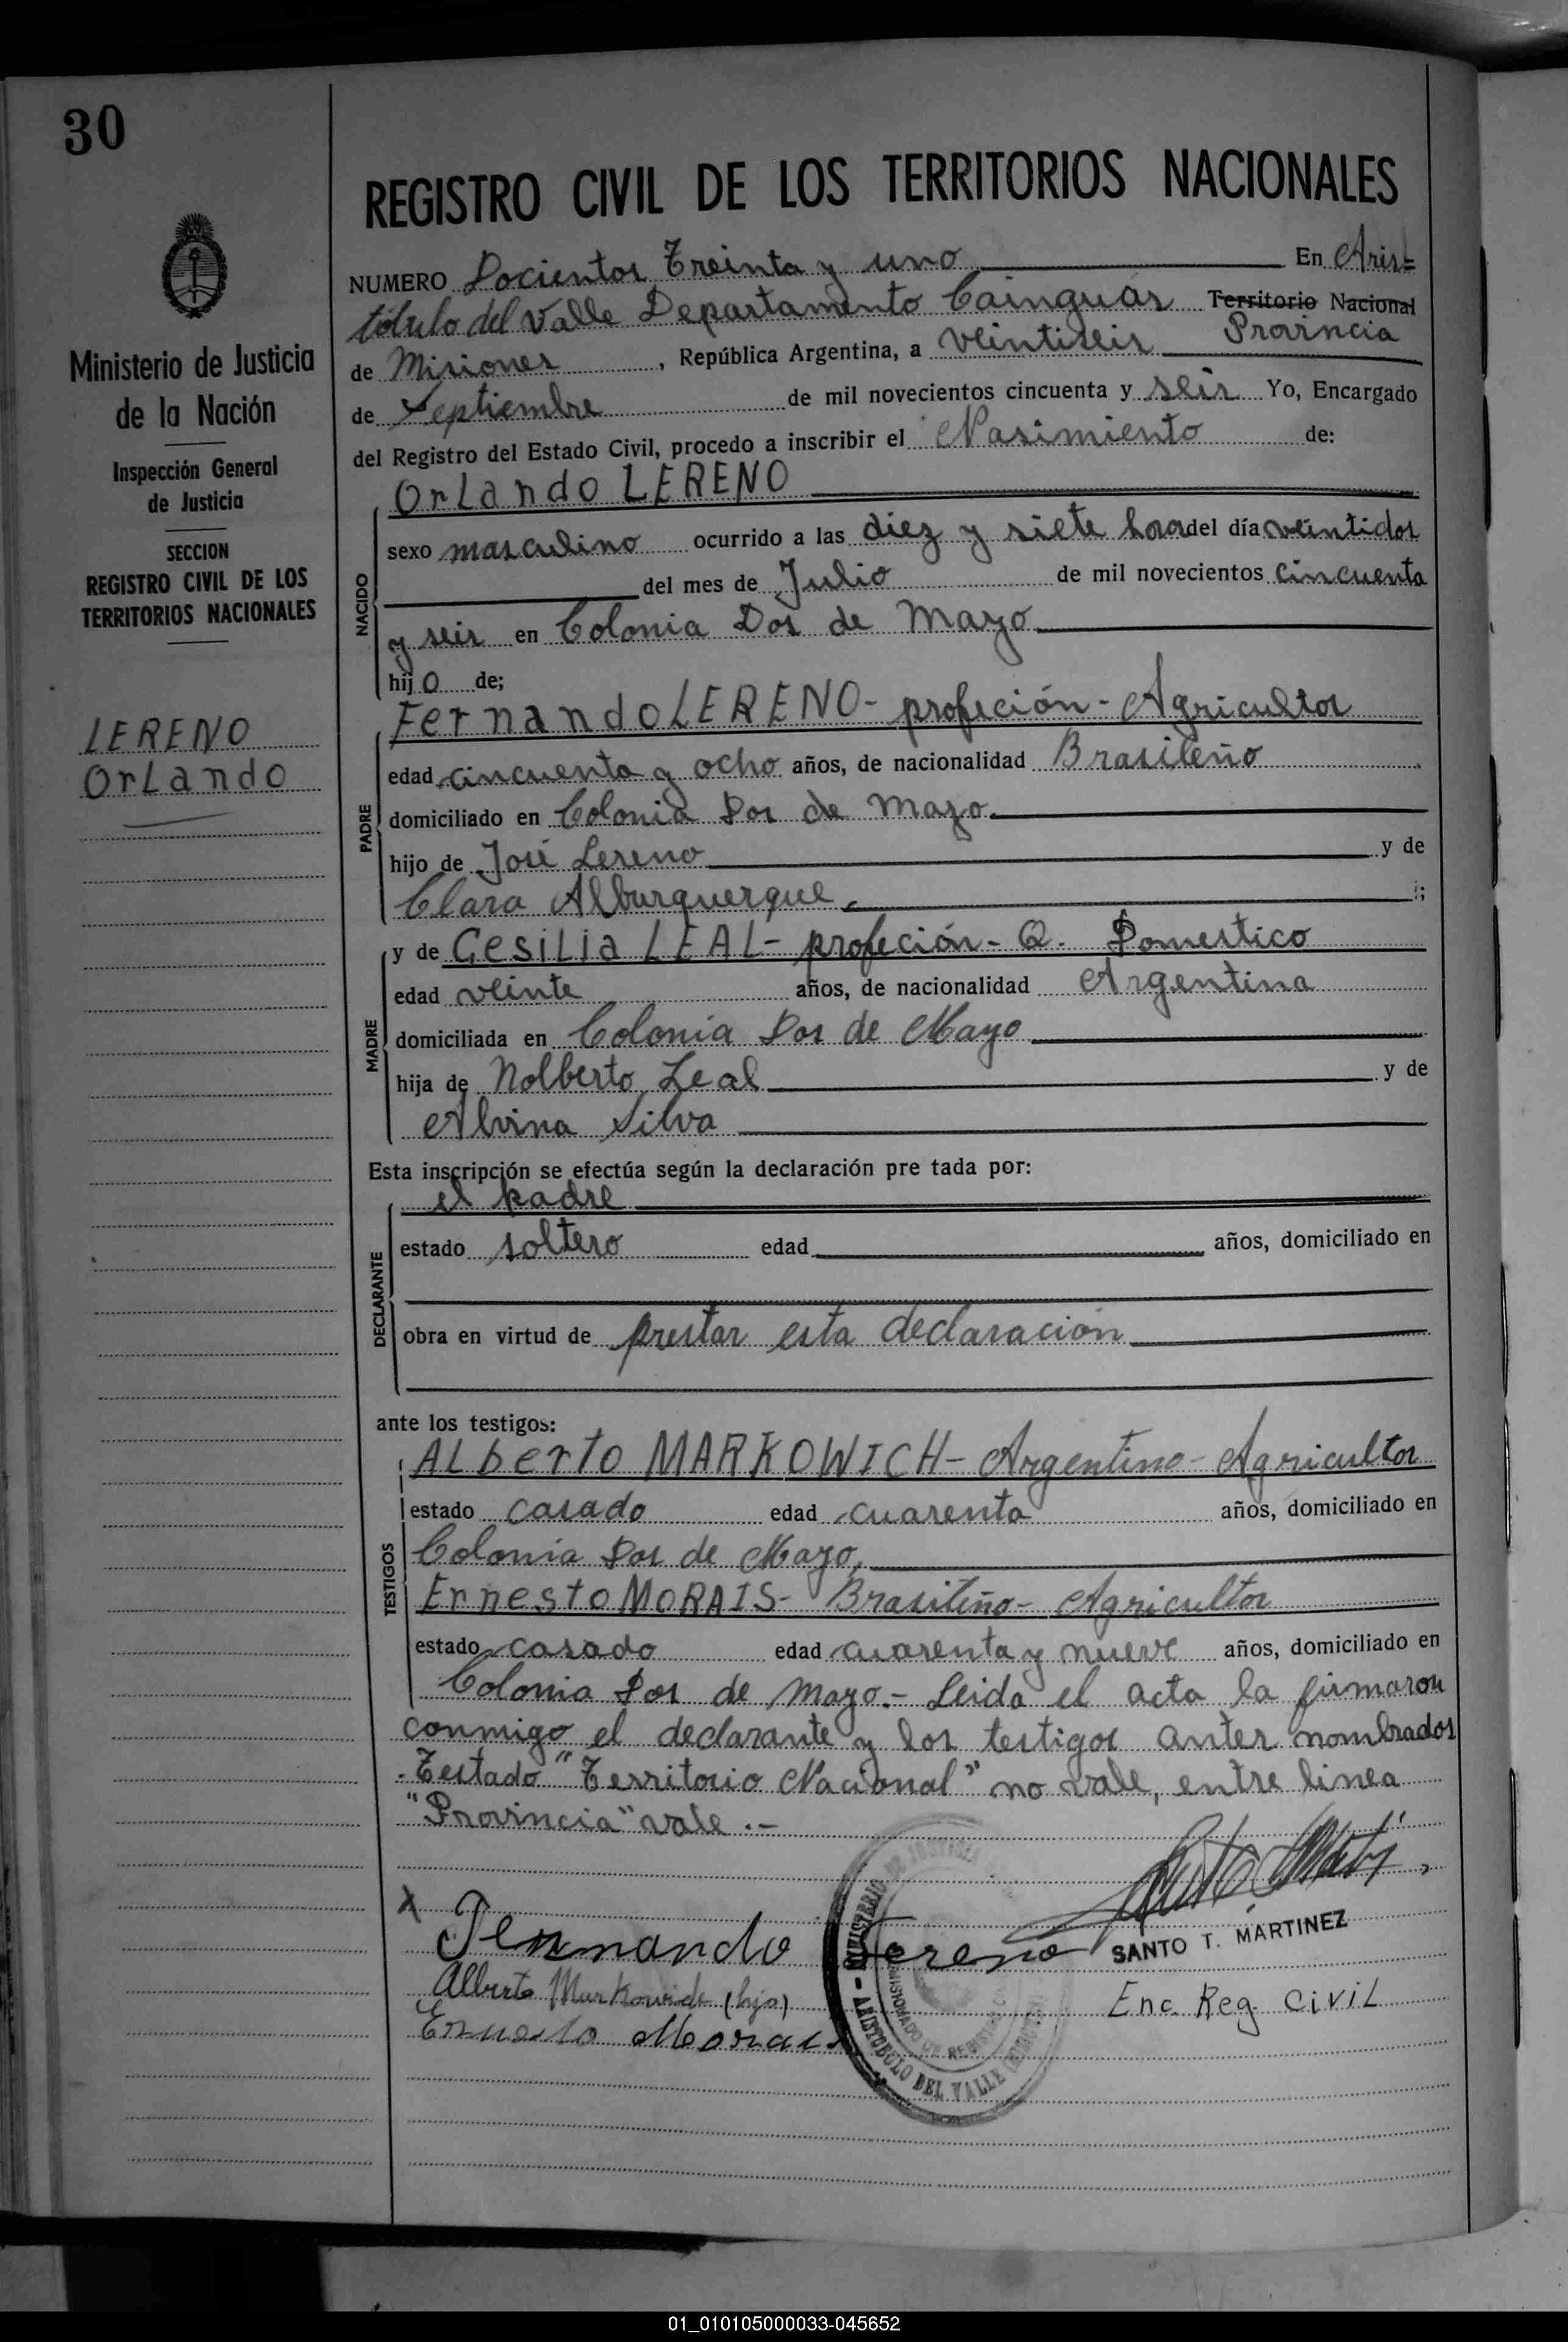 30
Ministerio de Justicia
de la Nación
Inspección General
de Justicia
SECCION
REGISTRO CIVIL DE LOS
TERRITORIOS NACIONALES
LERENO
OrLando
REGISTRO CIVIL DE LOS TERRITORIOS NACIONALES
NUMERO Docientos Treinta y uno En Aris=
tóbulo del Valle Departamento Cainguás Territorio Nacional
Provincia
de Misiones, República Argentina, a veintiseis
de Septiembre de mil novecientos cincuenta y seis Yo, Encargado
del Registro del Estado Civil, procedo a inscribir el Nasimiento de:
OrLando LERENO
NACIDO
sexo masculino ocurrido a las diez y siete horas del día veintidos
del mes de Julio de mil novecientos cincuenta
y seis en Colonia Dos de Mayo
hijo de;
PADRE
Fernando LERENO - profeción - Agricultor
edad cincuenta y ocho años, de nacionalidad Brasileño
domiciliado en Colonia Dos de Mayo.
hijo de José Lereno y de
Clara Alburquerque,
MADRE
y de CesiLia LEAL - profeción - Q. Domestico
edad veinte años, de nacionalidad Argentina
domiciliada en Colonia Dos de Mayo
hija de Nolberto Leal y de
Alvina Silva
Esta inscripción se efectúa según la declaración pre tada por:
DECLARANTE
el padre
estado soltero edad años, domiciliado en
obra en virtud de prestar esta declaración
ante los testigos:
TESTIGOS
ALberto MARKOWICH - Argentino - Agricultor
estado casado edad cuarenta años, domiciliado en
Colonia Dos de Mayo,
Ernesto MORAIS - Brasileño - Agricultor
estado casado edad cuarenta y nueve años, domiciliado en
Colonia Dos de Mayo.- Leida el acta la firmaron
conmigo el declarante y los testigos antes nombrados
. Testado "Territorio Nacional" no vale, entre linea
"Provincia" vale .-
X
Fernando Lereno
SANTO T. MARTINEZ
Alberto Markowich (hijo)
Enc. Reg. CiviL
Ernesto Morais
MINISTERIO DE JUSTICIA - ARISTOBULO DEL VALLE
01_010105000033-045652